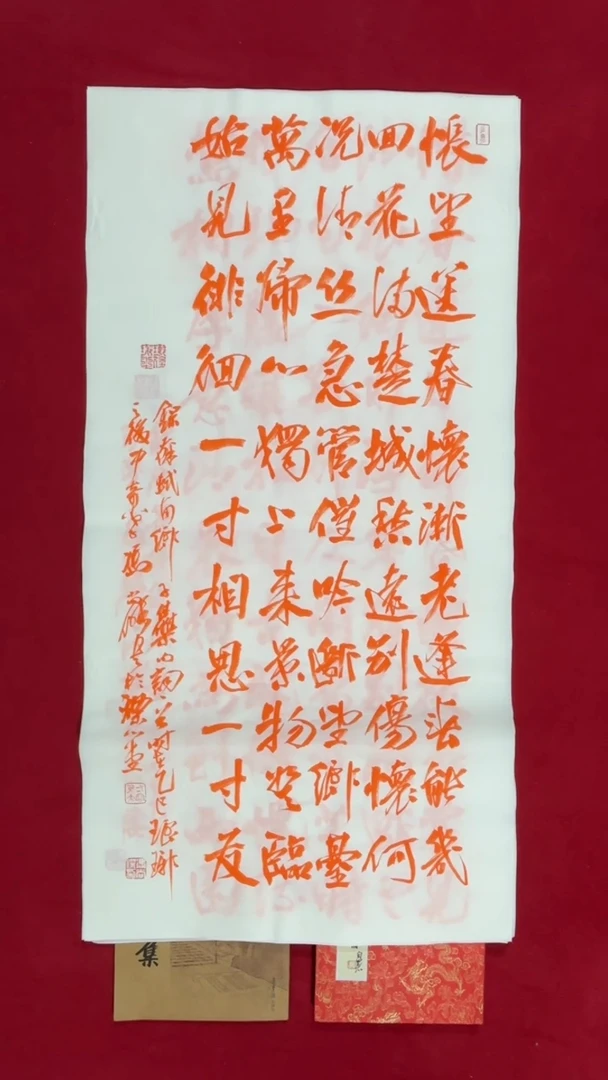 悵望送春懷漸老逢春能幾
回花滿楚城愁遠別傷懷何
况清絲急管催吟斷望鄉臺
萬里歸心獨上來景物登臨
始見徘徊一寸相思一寸灰
錄蘇軾南鄉子集句詞 乙巳
集